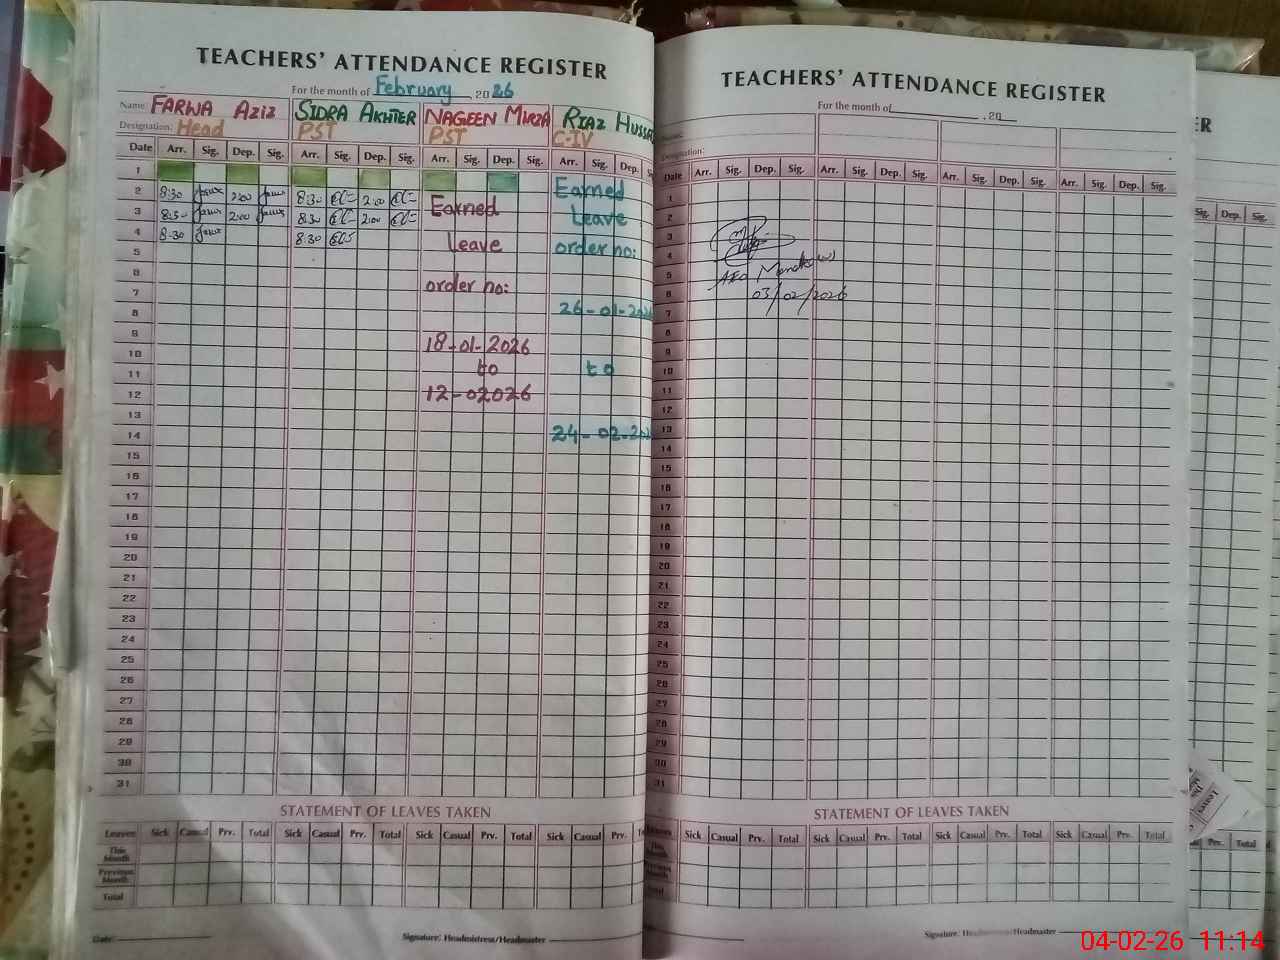 TEACHERS' ATTENDANCE REGISTER
For the month of February 2026
Name: FARWA Aziz SIDRA AKHTER NAGEEN MIRZA RIAZ HUSSA
Designation: Head PST PST C-IV
Date Arr. Sig. Dep. Sig. Arr. Sig. Dep. Sig. Arr. Sig. Dep. Arr. Sig. Dep.
1
2 8:30 2:00 8:30 2:00 Earned Earned
3 8:30 2:00 8:30 2:00 Leave
4 8-30 8:30 Leave order no:
5
6
7 order no:
8 26-01-202
9
10 18-01-2026
11 to to
12 12-02026
13
14 24-02-202
15
16
17
18
19
20
21
22
23
24
25
26
27
28
29
30
31
STATEMENT OF LEAVES TAKEN
Leaves Sick Casual Prv. Total Sick Casual Prv. Total Sick Casual Prv. Total Sick Casual Prv.
This Month
Previous Month
Total
Date:
Signature: Headmistress/Headmaster
TEACHERS' ATTENDANCE REGISTER
For the month of , 20
Designation:
Date Arr. Sig. Dep. Sig. Arr. Sig. Dep. Sig. Arr. Sig. Dep. Sig. Arr. Sig. Dep. Sig.
1
2
3
4
5 AEO
6 03/02/2026
7
8
9
10
11
12
13
14
15
16
17
18
19
20
21
22
23
24
25
26
27
28
29
30
31
STATEMENT OF LEAVES TAKEN
Sick Casual Prv. Total Sick Casual Prv. Total Sick Casual Prv. Total Sick Casual Prv. Total
Signature: Headmistress/Headmaster
ER
Sig. Dep. Sig.
Leaves
Prv. Total
04-02-26 11:14